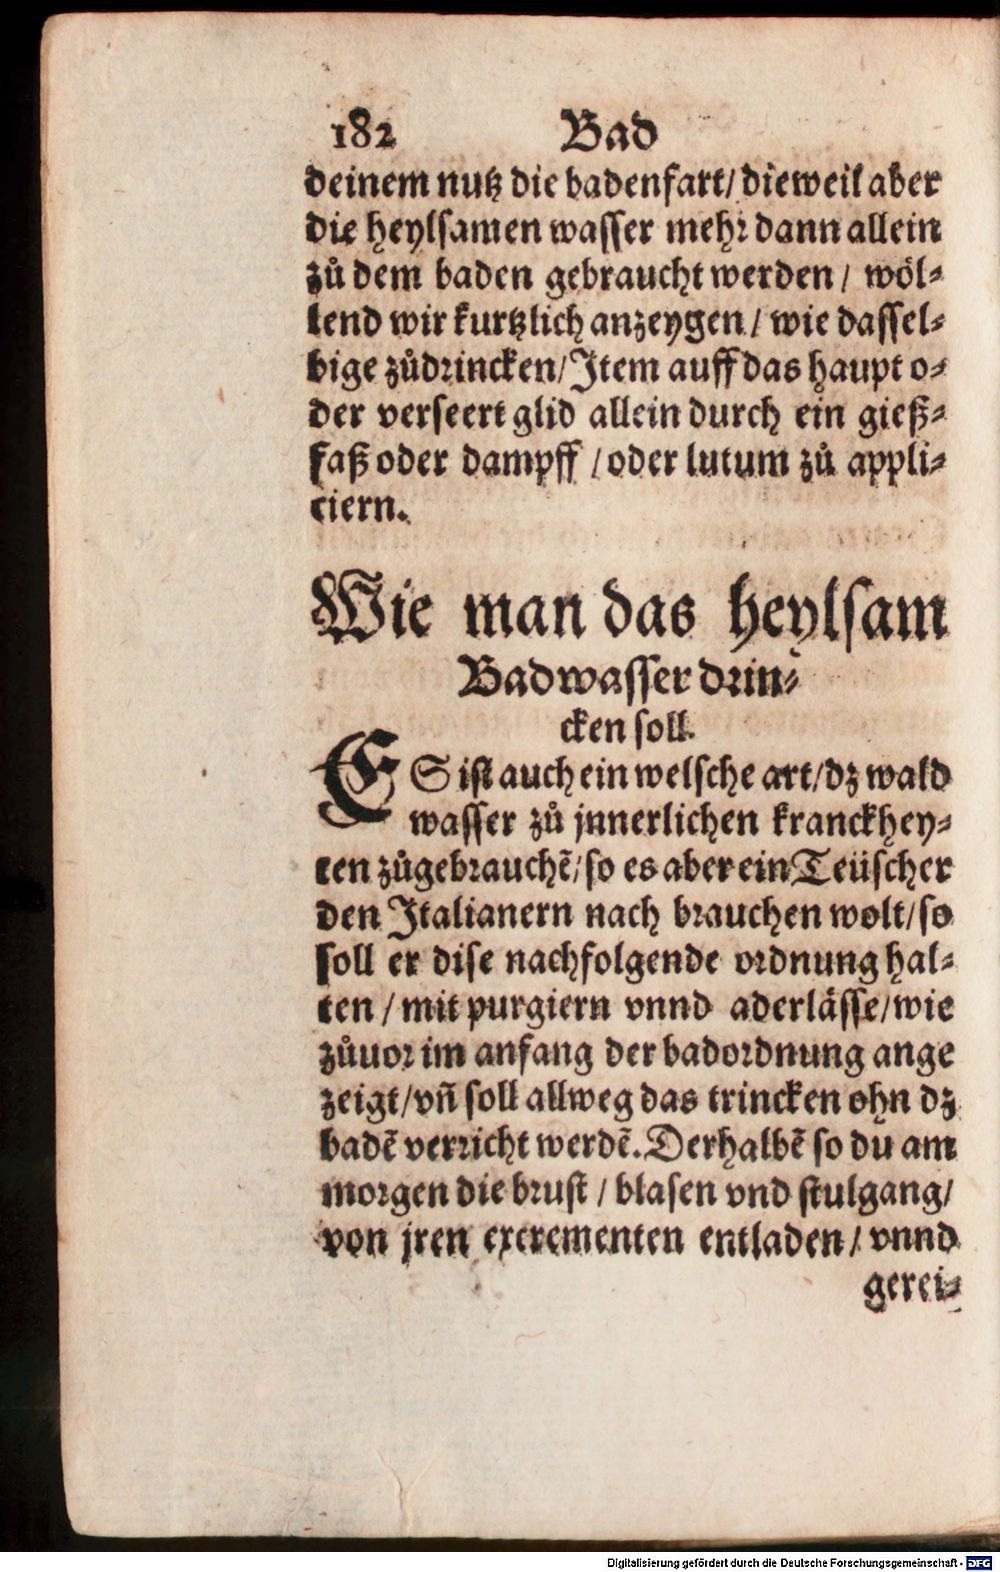 182 Bad
deinem nutz die badenfart/ dieweil aber
die heylsamen wasser mehr dann allein
zů dem baden gebraucht werden / wöl⸗
lend wir kurtzlich anzeygen / wie dassel⸗
bige zůdrincken/ Item auff das haupt o⸗
der verseert glid allein durch ein gieß⸗
faß oder dampff / oder lutum zů appli⸗
ciern.
Wie man das heylsam
Badwasser drin⸗
cken soll.
ES ist auch ein welsche art/ dz wald
wasser zů jnnerlichen kranckhey⸗
ten zůgebrauchē/ so es aber ein Teüscher
den Italianern nach brauchen wolt/ so
soll er dise nachfolgende ordnung hal⸗
ten / mit purgiern vnnd aderlässe/ wie
zůuor im anfang der badordnung ange
zeigt/ vñ soll allweg das trincken ohn dz
badē verricht werdē. Derhalbē so du am
morgen die brust / blasen vnd stulgang/
von jren excrementen entladen / vnnd
gerei⸗
Digitalisierung gefördert durch die Deutsche Forschungsgemeinschaft - DFG